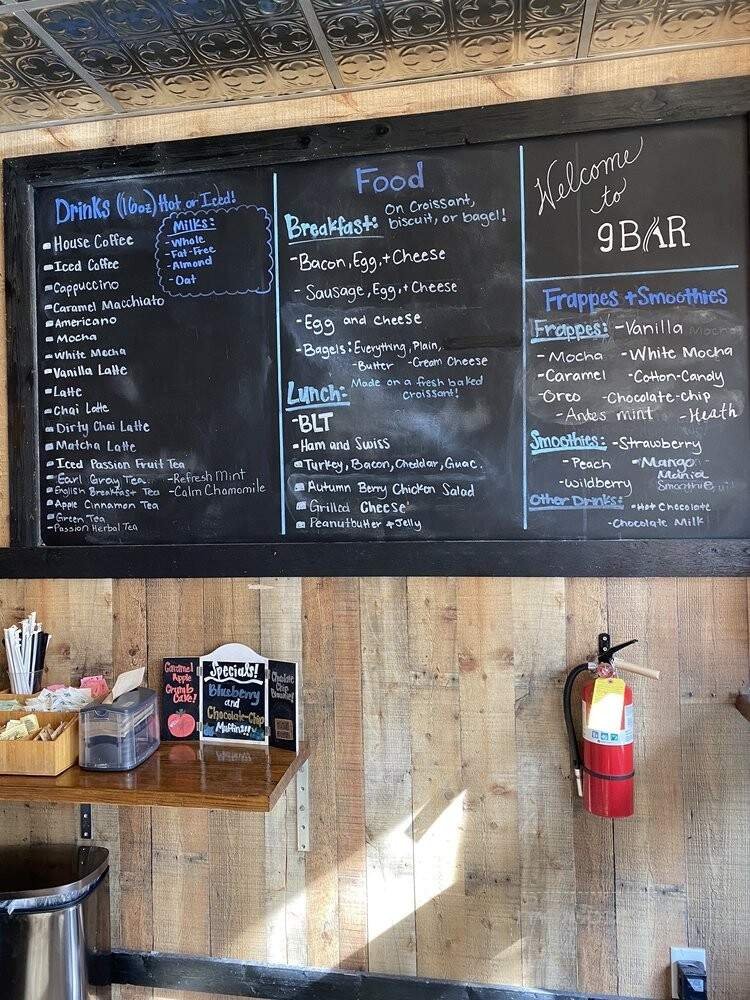 Drinks (16oz) Hot or Iced!
Milks:
- Whole
- Fat-Free
- Almond
- Oat
House Coffee
Iced Coffee
Cappuccino
Caramel Macchiato
Americano
Mocha
White Mocha
Vanilla Latte
Latte
Chai Latte
Dirty Chai Latte
Matcha Latte
Iced Passion Fruit Tea
Earl Gray Tea
English Breakfast Tea
Apple Cinnamon Tea
Green Tea
- Passion Herbal Tea
- Refresh Mint
- Calm Chamomile
Food
Breakfast: On Croissant,
biscuit, or bagel!
- Bacon, Egg, + Cheese
- Sausage, Egg, + Cheese
- Egg and cheese
- Bagels: Everything, Plain,
- Butter - Cream Cheese
Lunch: Made on a fresh baked
croissant!
- BLT
- Ham and Swiss
Turkey, Bacon, Cheddar, Guac.
Autumn Berry Chicken Salad
Grilled Cheese
Peanutbutter + Jelly
Welcome
to
9BAR
Frappes + Smoothies
Frappes: - Vanilla
- Mocha - White Mocha
- Caramel - Cotton-Candy
- Oreo - Chocolate-chip
- Andes mint - Heath
Smoothies: - Strawberry
- Peach - Mango
Mania
Smoothie
- Wildberry
Other Drinks: - Hot Chocolate
- Chocolate Milk
Caramel
Apple
Crumb
Cake!
Specials!
Blueberry
and
Chocolate-Chip
Muffins!!
Chocolate
Chip